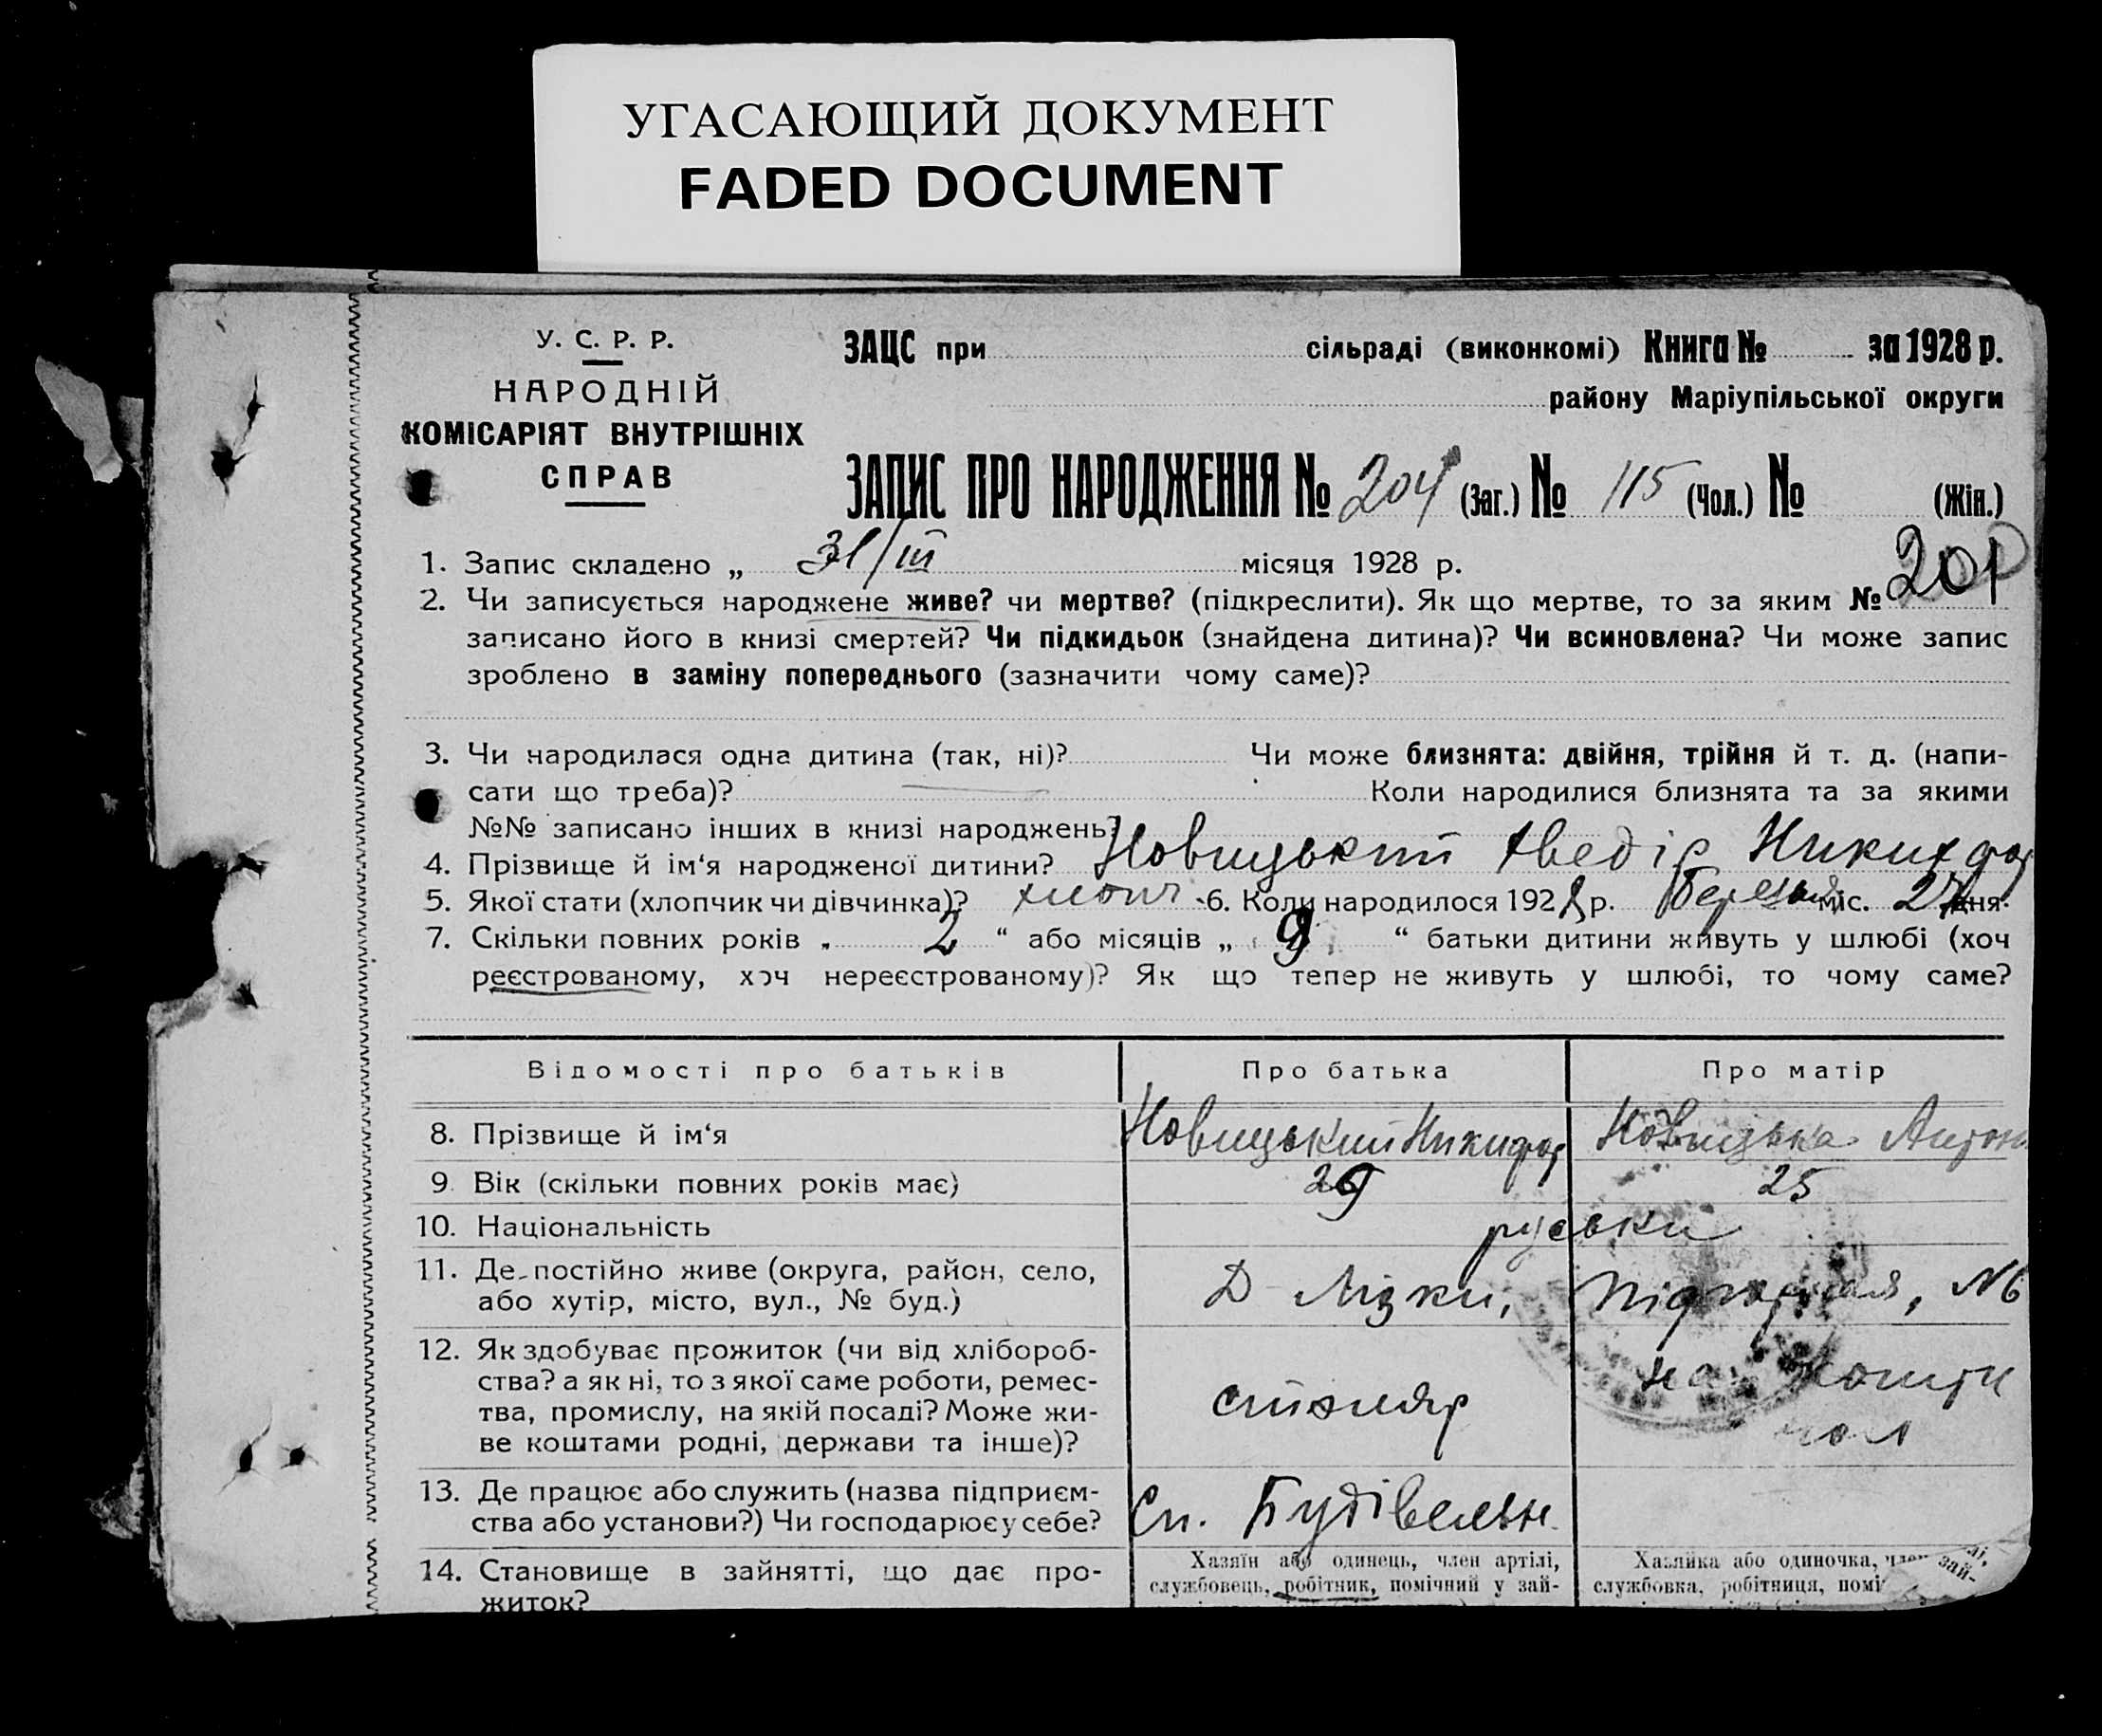 УГАСАЮЩИЙ ДОКУМЕНТ
FADED DOCUMENT
У. С. Р. Р.
НАРОДНІЙ
КОМІСАРІЯТ ВНУТРІШНІХ
СПРАВ
ЗАЦС при сільраді (виконкомі) Книга № за 1928 р.
району Маріупільської округи
ЗАПИС ПРО НАРОДЖЕННЯ № 204 (Заг.) № 115 (Чол.) № (Жін.)
1. Запис складено „ 31/III місяця 1928 р.
201
2. Чи записується народжене живе? чи мертве? (підкреслити). Як що мертве, то за яким №
записано його в книзі смертей? Чи підкидьок (знайдена дитина)? Чи всиновлена? Чи може запис
зроблено в заміну попереднього (зазначити чому саме)?
3. Чи народилася одна дитина (так, ні)? Чи може близнята: двійня, трійня й т. д. (напи-
сати що треба)? Коли народилися близнята та за якими
№№ записано інших в книзі народжень?
4. Прізвище й ім‘я народженої дитини? Новицький Хведір Никифор
5. Якої стати (хлопчик чи дівчинка)? хлопч 6. Коли народилося 1928 р. Березня міс. 27 дня.
7. Скільки повних років „ 2 “ або місяців „ 9 “ батьки дитини живуть у шлюбі (хоч
реєстрованому, хоч нереєстрованому)? Як що тепер не живуть у шлюбі, то чому саме?
Відомості про батьків Про батька Про матір
8. Прізвище й ім‘я Новицький Никифор Новицька Антон
9. Вік (скільки повних років має) 29 25
10. Національність руськи
11. Де постійно живе (округа, район, село,
або хутір, місто, вул., № буд.) Д Лізки, №6
12. Як здобуває прожиток (чи від хлібороб-
ства? а як ні, то з якої саме роботи, ремес-
тва, промислу, на якій посаді? Може жи-
ве коштами родні, держави та інше)? столяр на кошти
чол
13. Де працює або служить (назва підприєм-
ства або установи?) Чи господарює у себе? Сп. Будівельн.
14. Становище в зайнятті, що дає про-
житок?
Хазяїн або одинець, член артілі,
службовець, робітник, помічний у зай-
Хазяйка або одиночка,
службовка, робітниця, помі
зай-